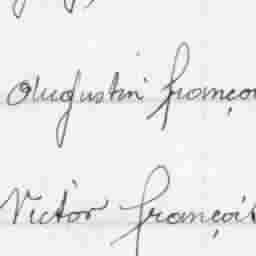 Augustin françoi
Victor françois